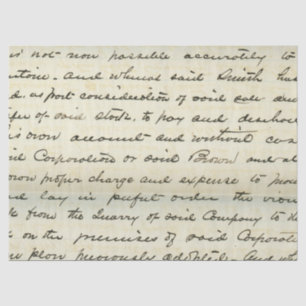 is not now possible accurately to
. And whereas said Smith has
d, as part consideration of said sale and
of said stock, to pay and discharge
his own account and without cos
id Corporation or said Brown and al
own proper charge and expense to mov
and lay in perfect order the iron
le from the Quarry of said Company to th
on the premises of said Corporati
plan previously adopted. And wh